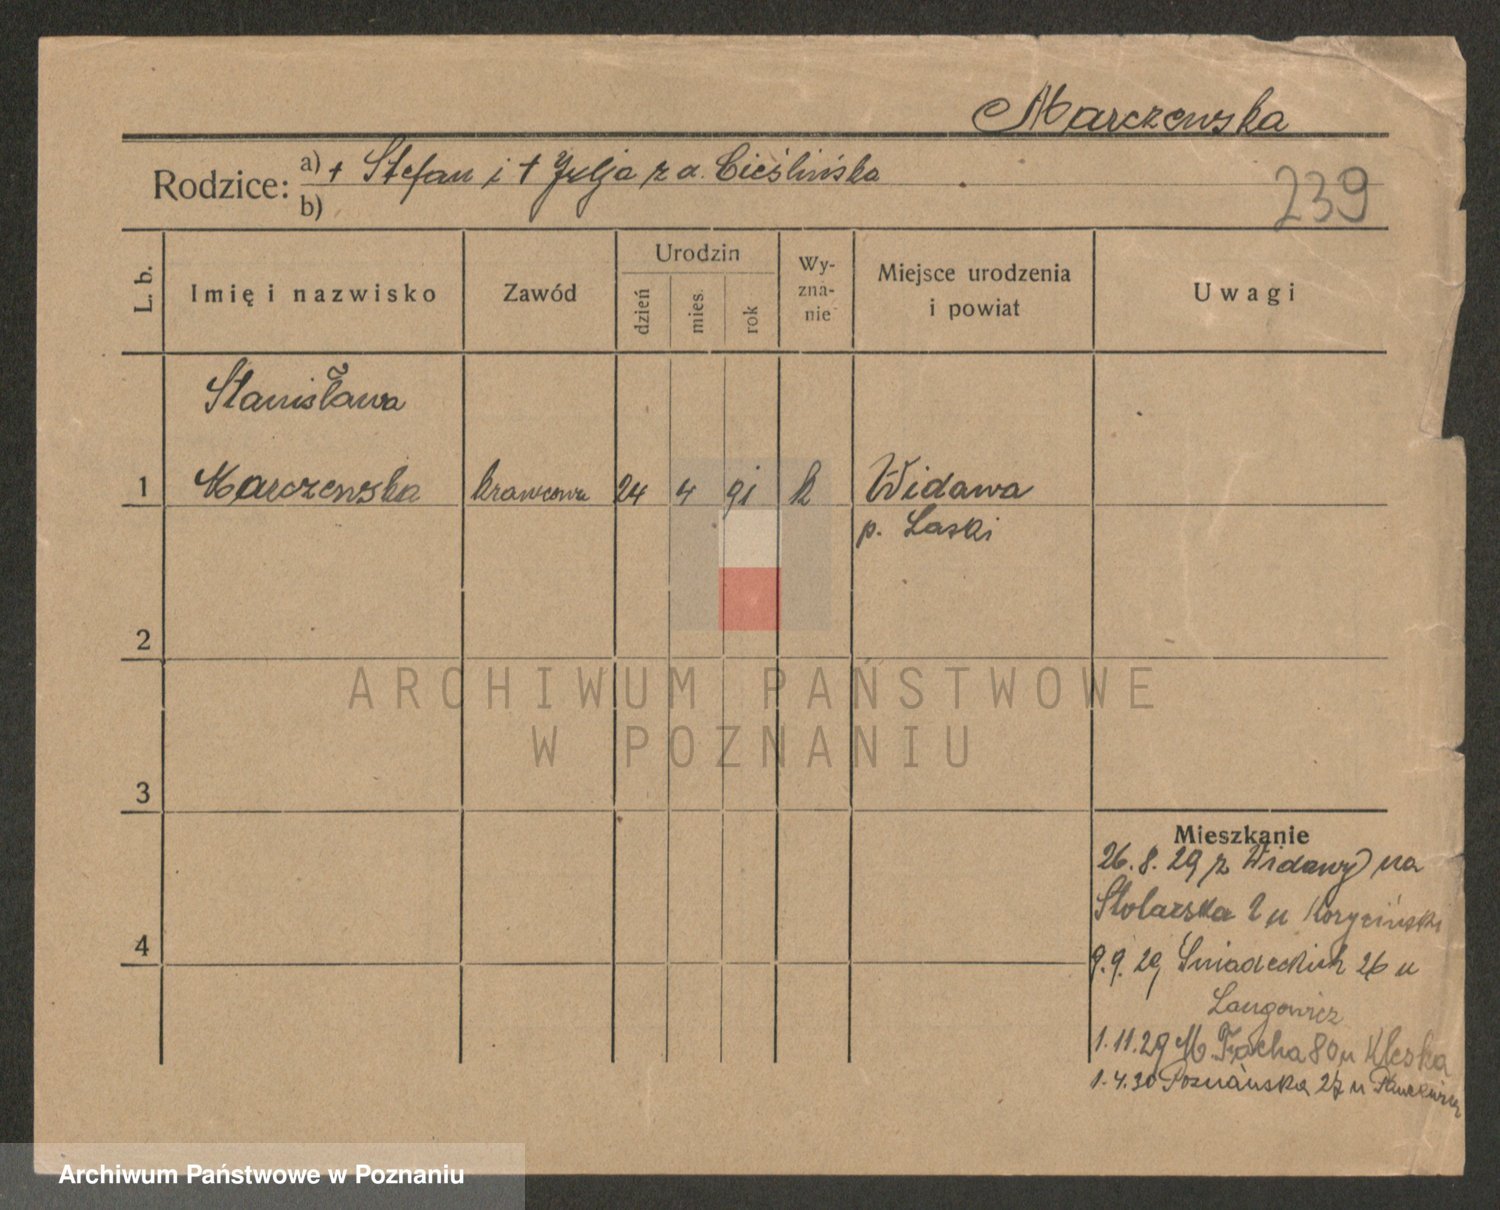 Marczewska
Rodzice: a) + Stefan i + Julja z d. Cieślińska
b)
239
L. b.
Imię i nazwisko
Zawód
Urodzin
dzień
mies.
rok
Wy-
zna-
nie
Miejsce urodzenia
i powiat
Uwagi
Stanisława
1 Marczewska krawcowa 24 4 91 k Widawa
p. Laski
2
ARCHIWUM PAŃSTWOWE
W POZNANIU
3
Mieszkanie
26.8.29 z Widawy na
Stolarska 2 u Koryciński
4
9.9.29 Śniadeckich 26 u
Langowicz
1.11.29 M. Focha 80 u Kleska
1.4.30 Poznańska 27 u
Archiwum Państwowe w Poznaniu